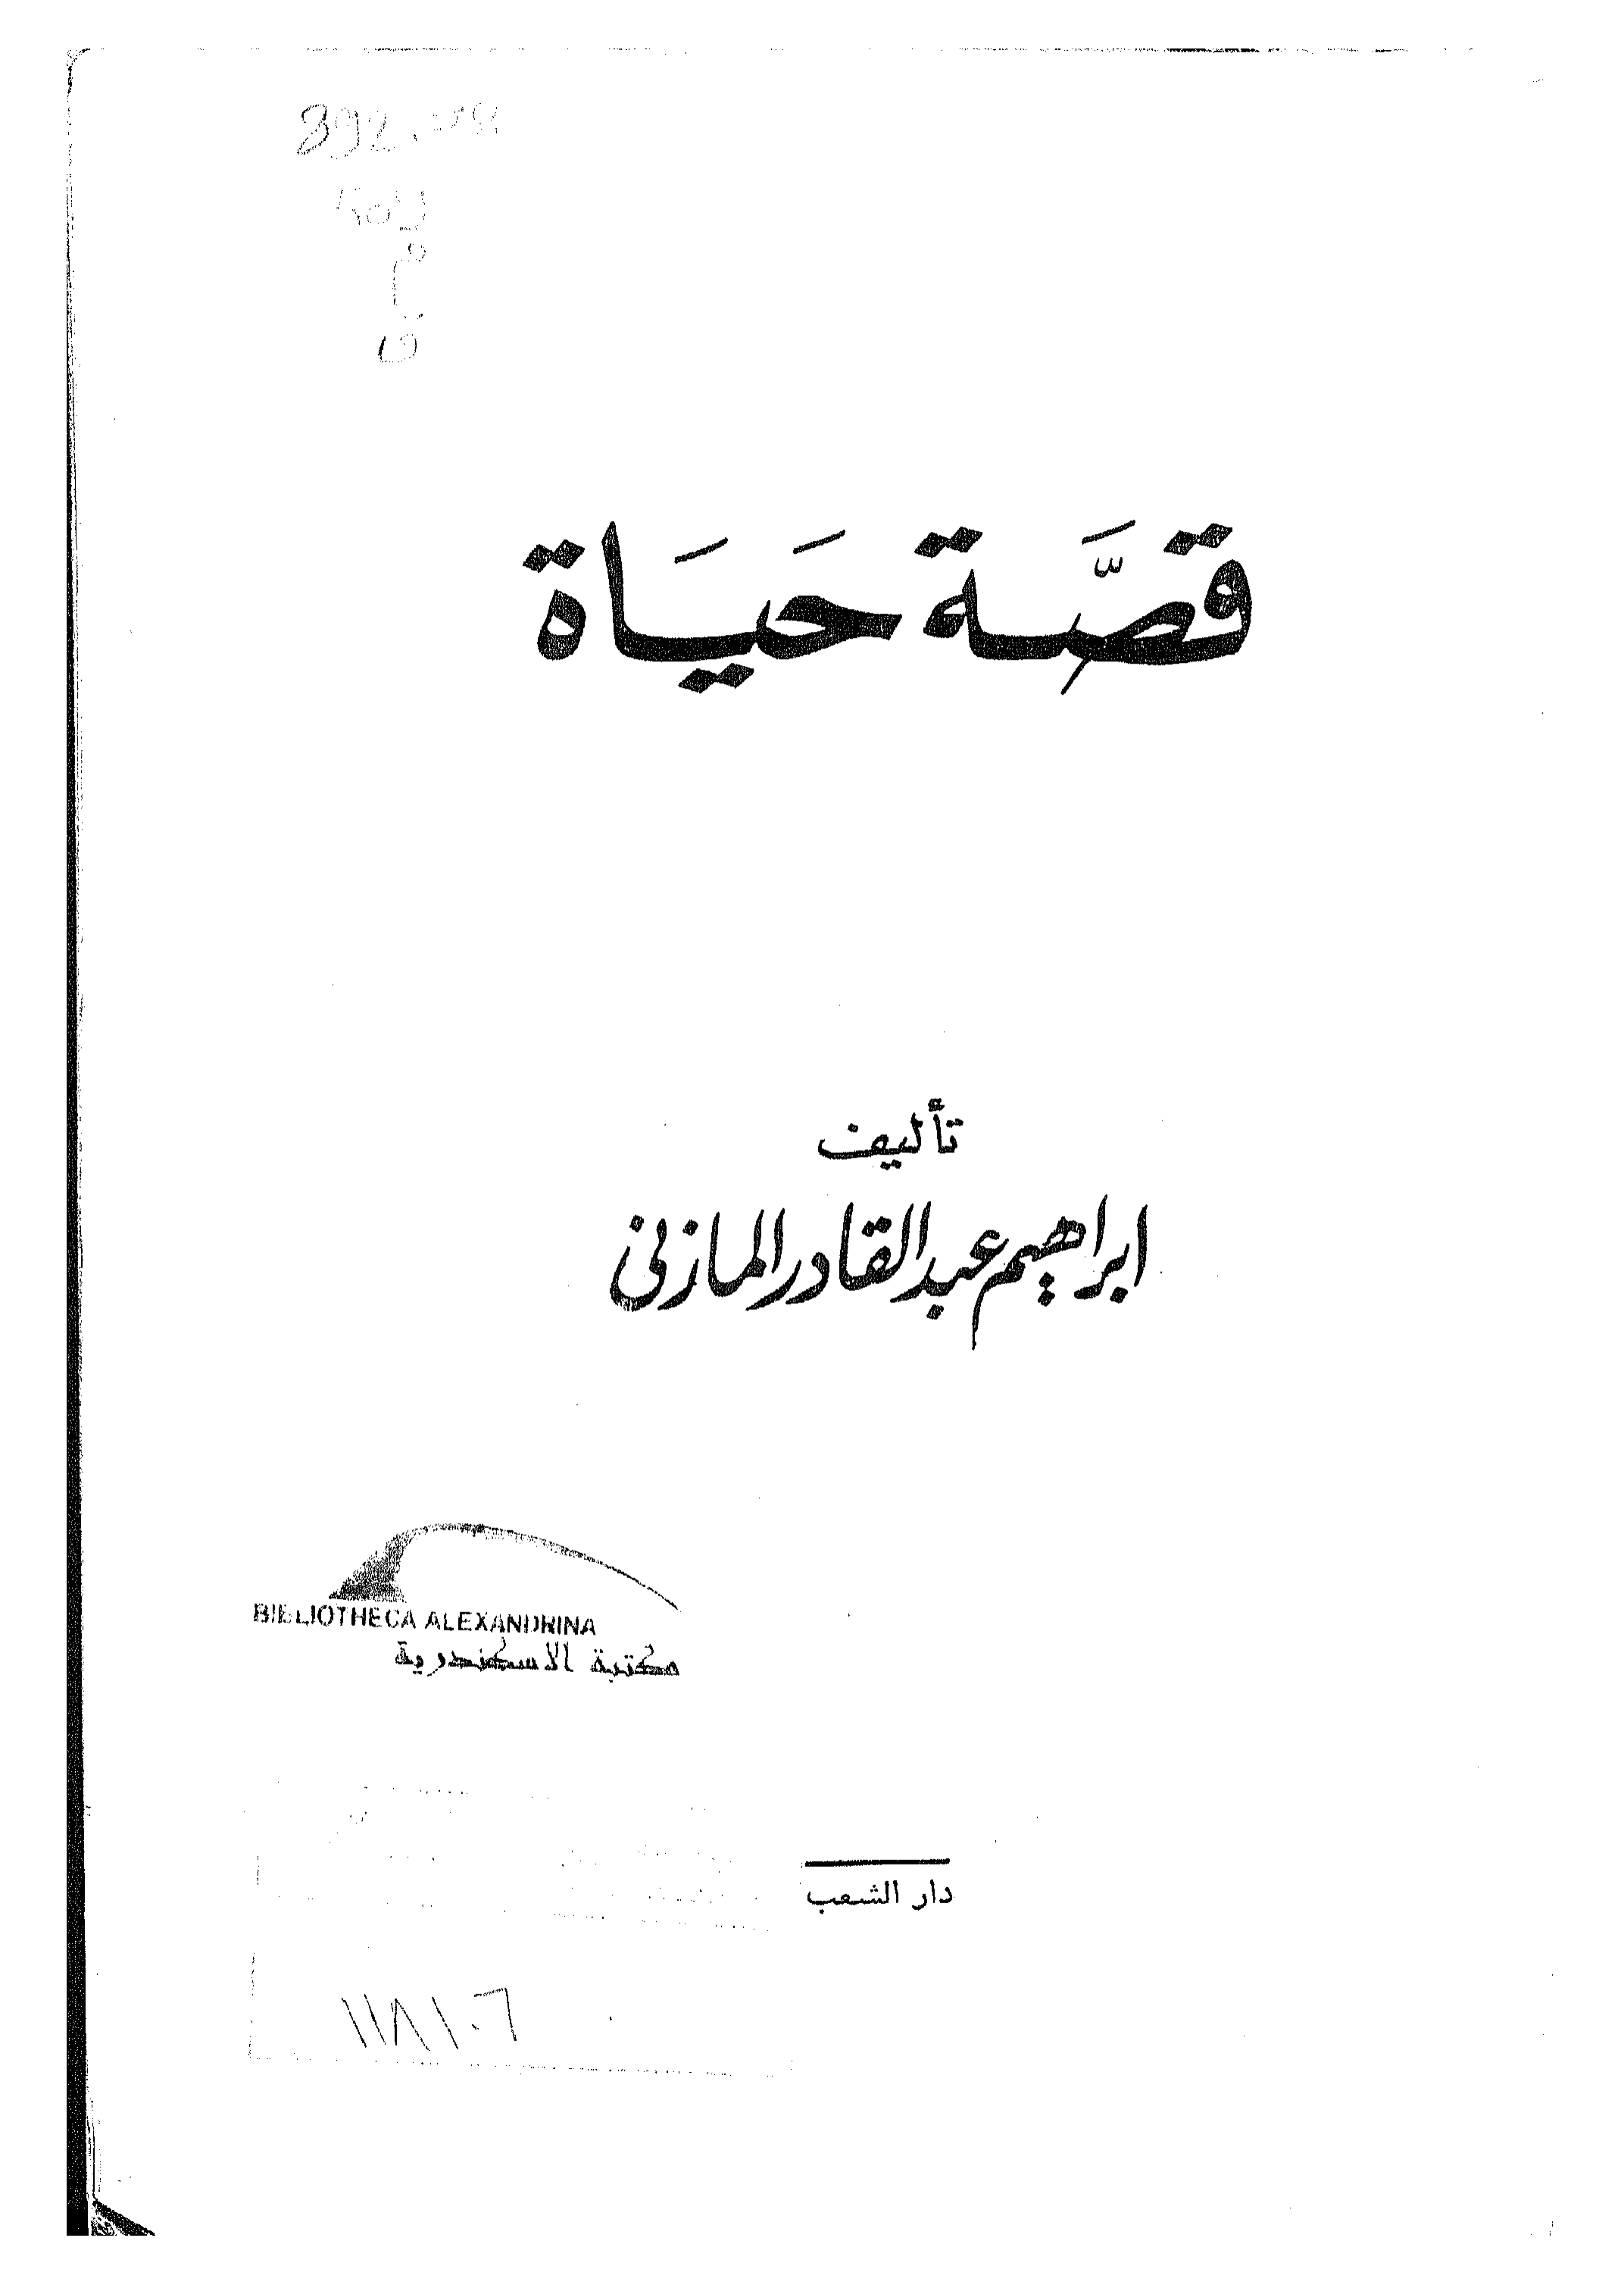 م
ق
قصَّة حَيَاة
تأليف
ابراهيم عبد القادر المازنى
BIBLIOTHECA ALEXANDRINA
مكتبة الاسكندرية
دار الشعب
١١٨١٠٦